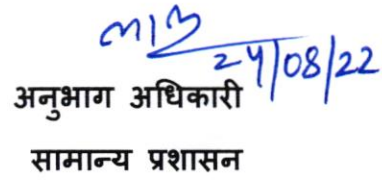 24/08/22
अनुभाग अधिकारी
सामान्य प्रशासन